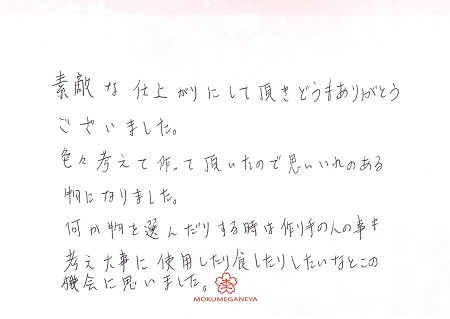 素敵な仕上がりにして頂きどうもありがとう
ございました。
色々考えて作って頂いたので思いいれのある
物になりました。
何か物を選んだりする時は作り手の人の事も
考え大事に使用したり食したりしたいなとこの
機会に思いました。
MOKUMEGANEYA